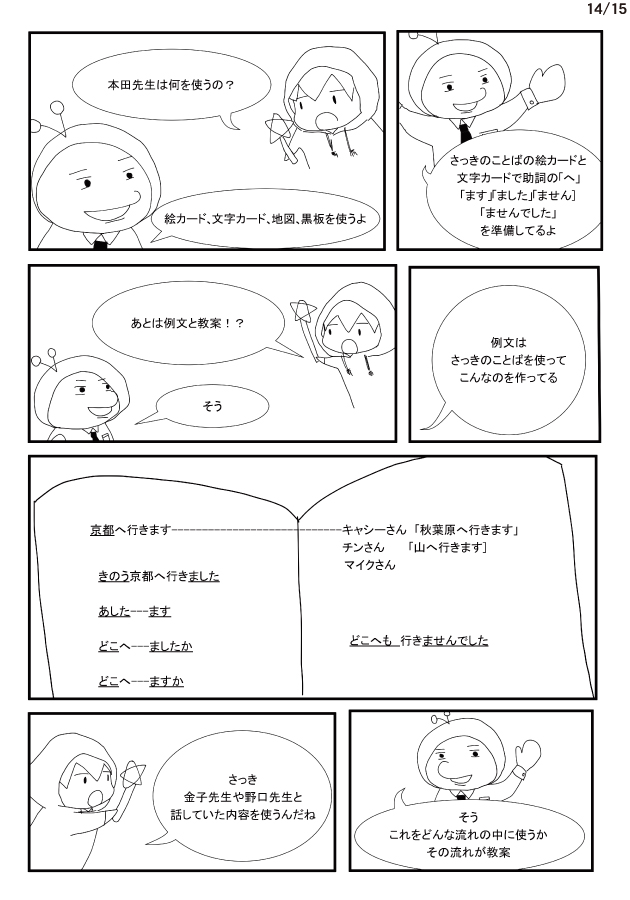 14/15
本田先生は何を使うの？
絵カード、文字カード、地図、黒板を使うよ
さっきのことばの絵カードと
文字カードで助詞の「へ」
「ます」「ました」「ません］
「ませんでした」
を準備してるよ
あとは例文と教案！？
そう
例文は
さっきのことばを使って
こんなのを作ってる
京都へ行きます-------------------------キャシーさん 「秋葉原へ行きます」
チンさん 「山へ行きます］
マイクさん
きのう京都へ行きました
あした---ます
どこへ---ましたか
どこへ---ますか
どこへも 行きませんでした
さっき
金子先生や野口先生と
話していた内容を使うんだね
そう
これをどんな流れの中に使うか
その流れが教案